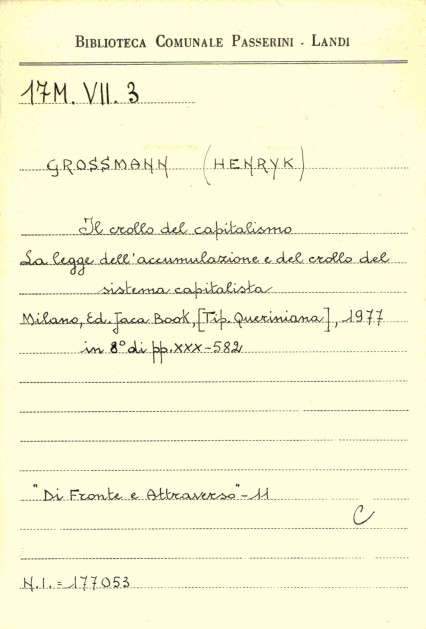 BIBLIOTECA COMUNALE PASSERINI - LANDI
17M. VII. 3
GROSSMANN (HENRYK)
Il crollo del capitalismo
La legge dell'accumulazione e del crollo del
sistema capitalista
Milano, Ed. Jaca Book, [Tip. Queriniana], 1977
in 8° di pp. XXX-582
"Di Fronte e Attraverso" - 11
C
N.I. = 177053